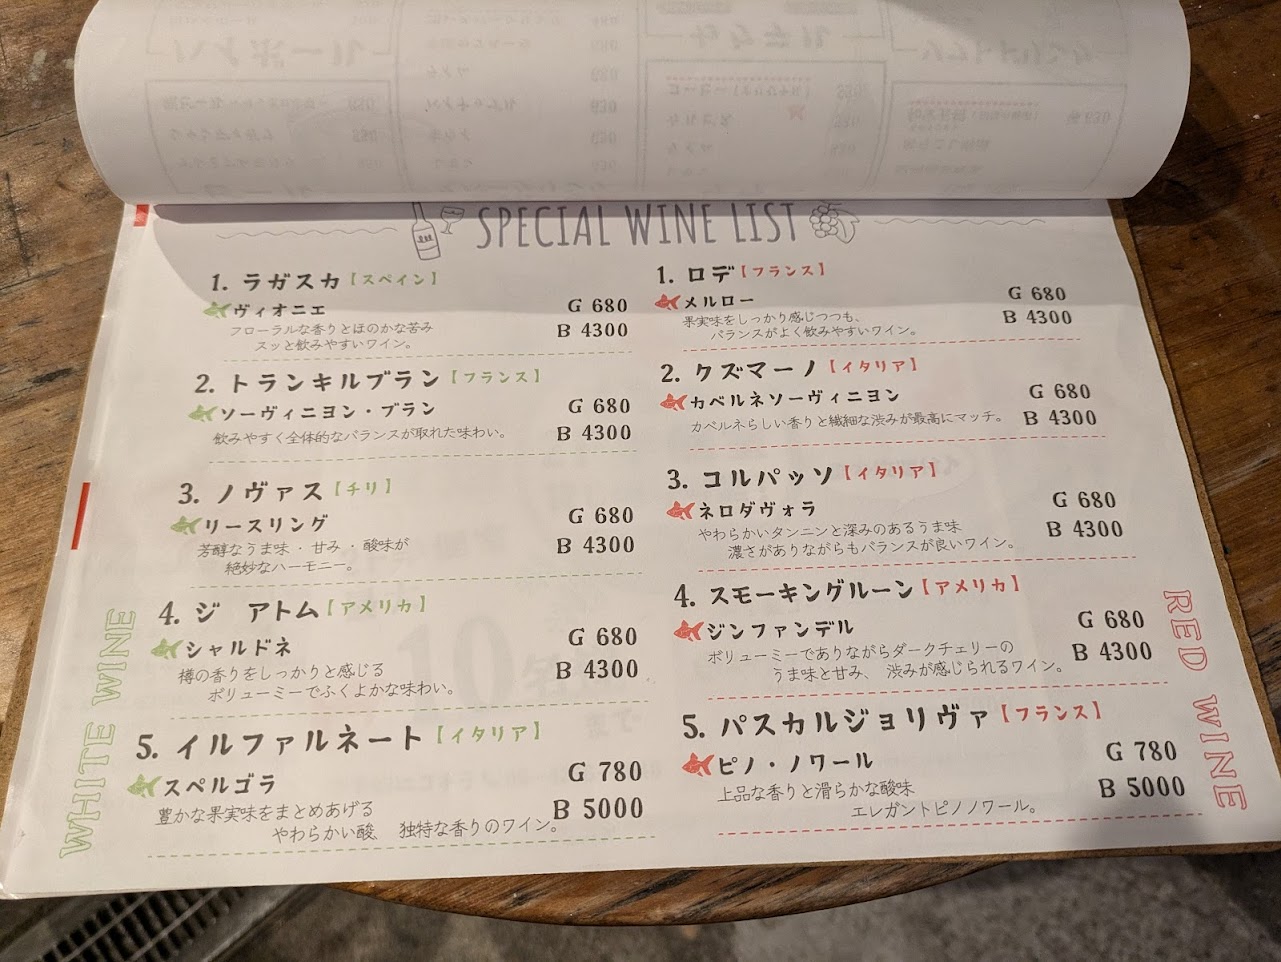 SPECIAL WINE LIST
1. ラガスカ【スペイン】
ヴィオニエ
G 680
フローラルな香りとほのかな苦み
スッと飲みやすいワイン。
B 4300
2. トランキルブラン【フランス】
ソーヴィニヨン・ブラン
G 680
飲みやすく全体的なバランスが取れた味わい。
B 4300
3. ノヴァス【チリ】
リースリング
G 680
芳醇なうま味・甘み・酸味が
絶妙なハーモニー。
B 4300
4. ジ アトム【アメリカ】
シャルドネ
G 680
樽の香りをしっかりと感じる
ボリューミーでふくよかな味わい。
B 4300
5. イルファルネート【イタリア】
スペルゴラ
G 780
豊かな果実味をまとめあげる
やわらかい酸、独特な香りのワイン。
B 5000
WHITE WINE
1. ロデ【フランス】
メルロー
G 680
果実味をしっかり感じつつも、
バランスがよく飲みやすいワイン。
B 4300
2. クズマーノ【イタリア】
カベルネソーヴィニヨン
G 680
カベルネらしい香りと繊細な渋みが最高にマッチ。
B 4300
3. コルパッソ【イタリア】
ネロダヴォラ
G 680
やわらかいタンニンと深みのあるうま味
濃さがありながらもバランスが良いワイン。
B 4300
4. スモーキングルーン【アメリカ】
ジンファンデル
G 680
ボリューミーでありながらダークチェリーの
うま味と甘み、渋みが感じられるワイン。
B 4300
5. パスカルジョリヴァ【フランス】
ピノ・ノワール
G 780
上品な香りと滑らかな酸味
エレガントピノノワール。
B 5000
RED WINE